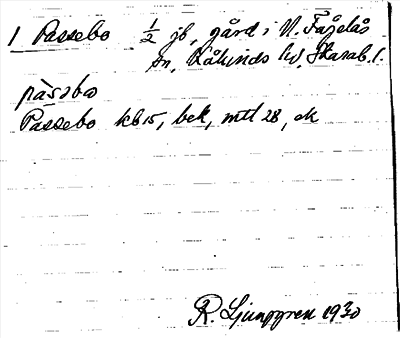 1 Passebo 1/2 jb, gård i N. Fågelås
sn, Kåkinds hd, Skarab. l.
pàsobω
Passebo kb 15, bek, mtl 28, ek
R. Ljunggren 1930